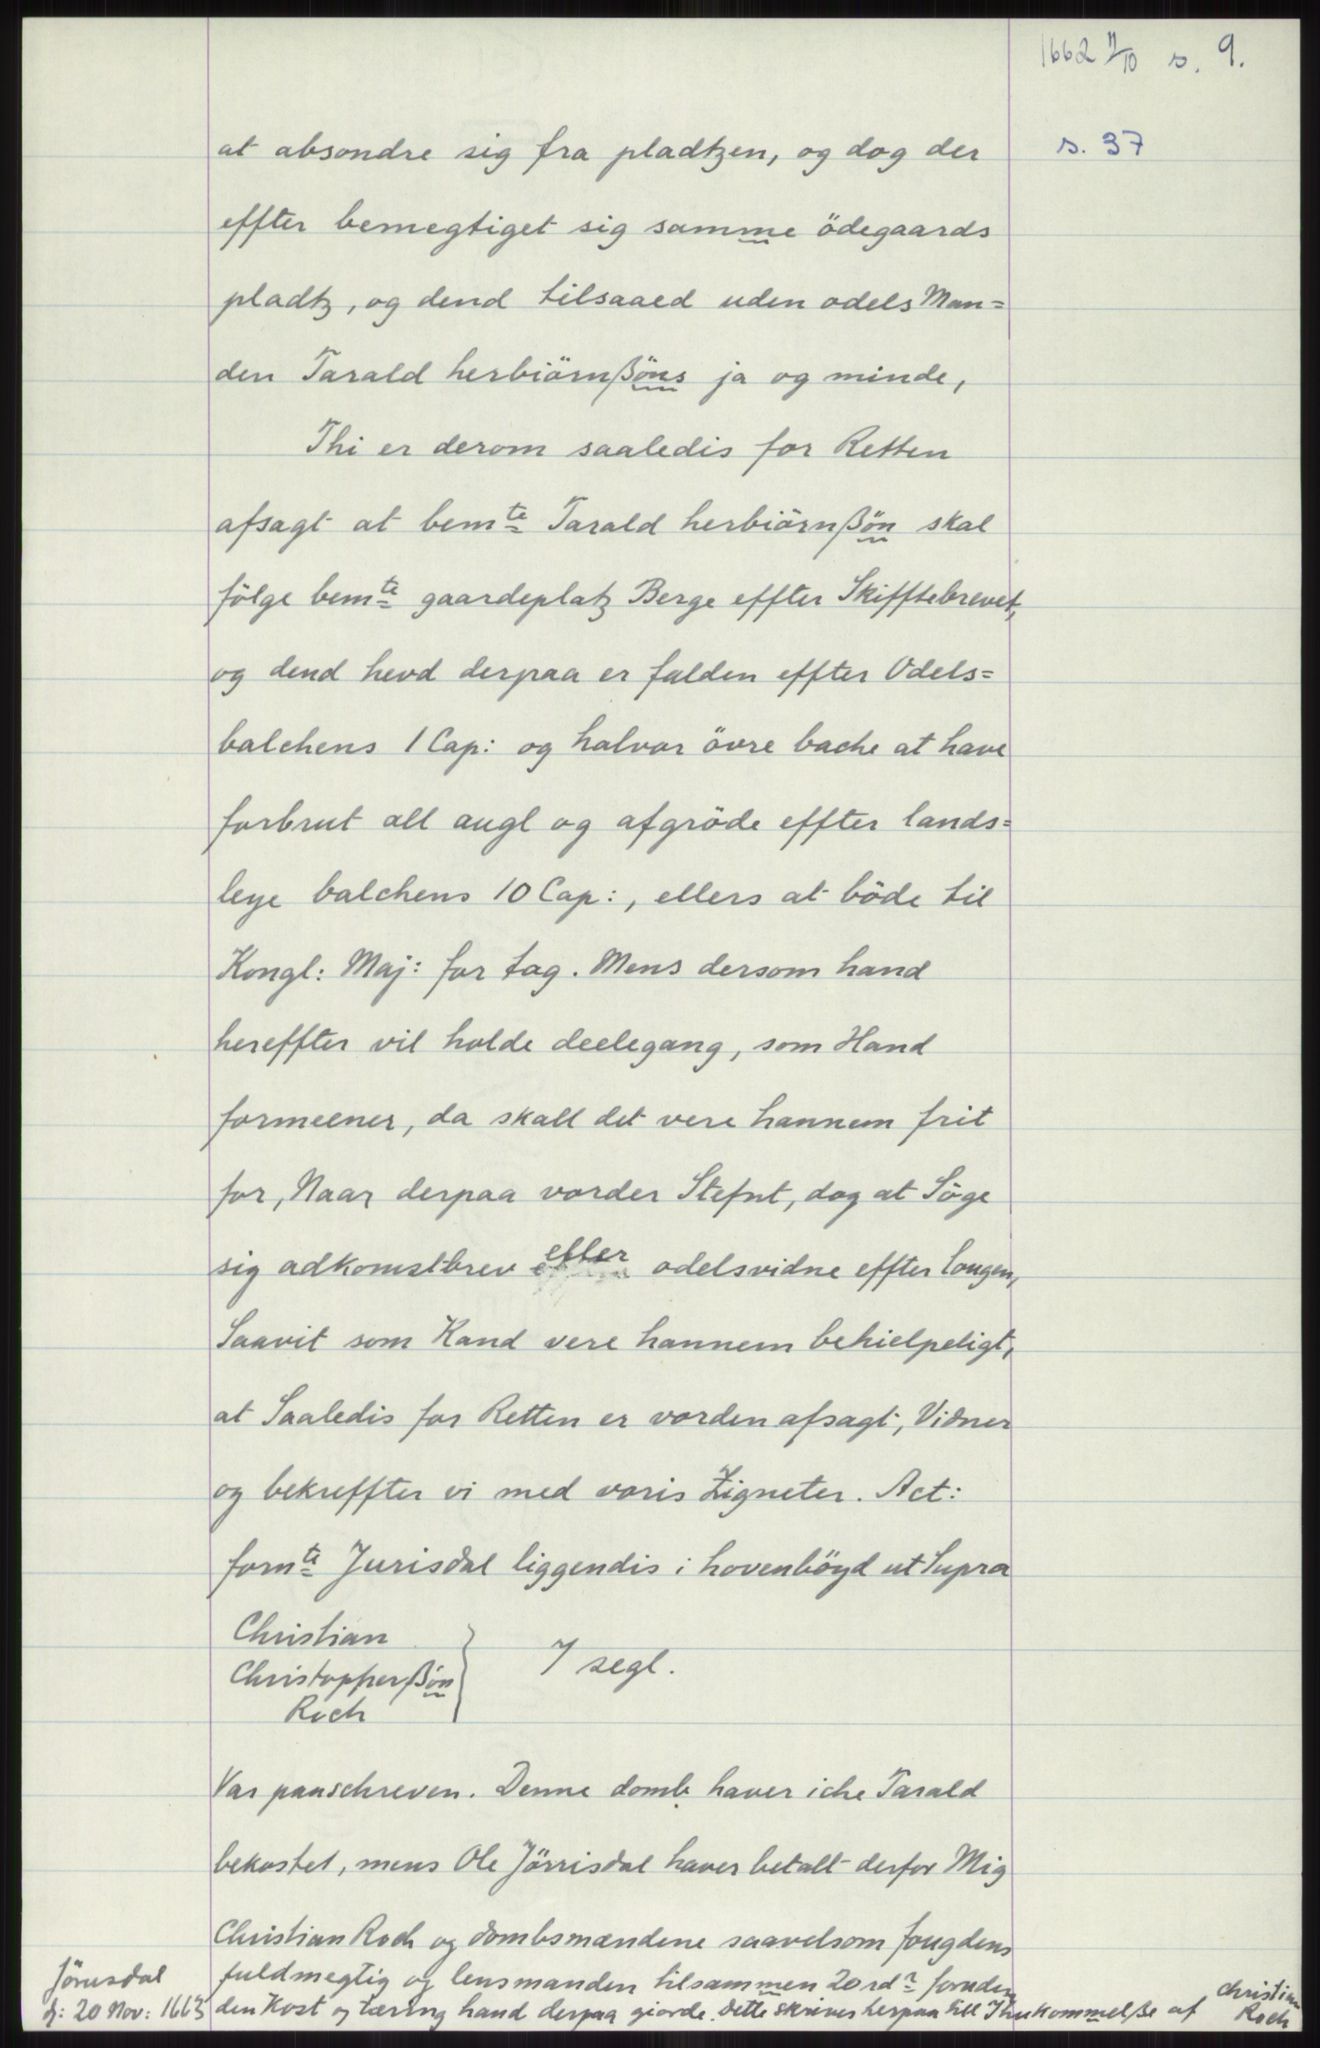 1662 11/10 s. 9.
s. 37
at absondre sig fra pladtzen, og dog der
effter bemegtiget sig samme ödegaards
pladtz, og dend tilsaaed uden odels Man=
den Tarald herbiörnßöns ja og minde,
Thi er derom saaledis for Retten
afsagt at bemte Tarald herbiörnßön skal
fölge bemte gaardeplatz Berge effter Skifftebrevet,
og dend hevd derpaa er falden effter Odels=
balchens 1 Cap: og halvor övre bache at have
forbrut all augl og afgröde effter lands=
leye balchens 10 Cap:, ellers at böde til
Kongl: Maj: for tag. Mens dersom hand
hereffter vil holde deelegang, som Hand
formeener, da skall det vere hannem frit
for, Naar derpaa vorder Stefnt, dog at Söge
sig adkomstbrev eller odelsvidne effter lougen,
Saavit som Kand vere hannem behielpeligt,
at Saaledis for Retten er vorden afsagt, Vidner
og bekreffter vi med voris Zigneter. Act:
fornte Jurisdal liggendis i hovenböyd ut Supra
Christian
Christopperßön
Roch
7 segl.
Var paaschreven. Denne domb haver iche Tarald
bekostet, mens Ole Jörrisdal haver betalt derfor Mig
Christian Roch og dombsmændene saavelsom fougdens
fuldmegtig og lensmanden tilsammen 20 rdr foruden
den Kost og tæring hand derpaa giorde. Dette skrives herpaa till Ihukommelße af Christian
Roch
Jörusdal
d: 20 Nov: 1663